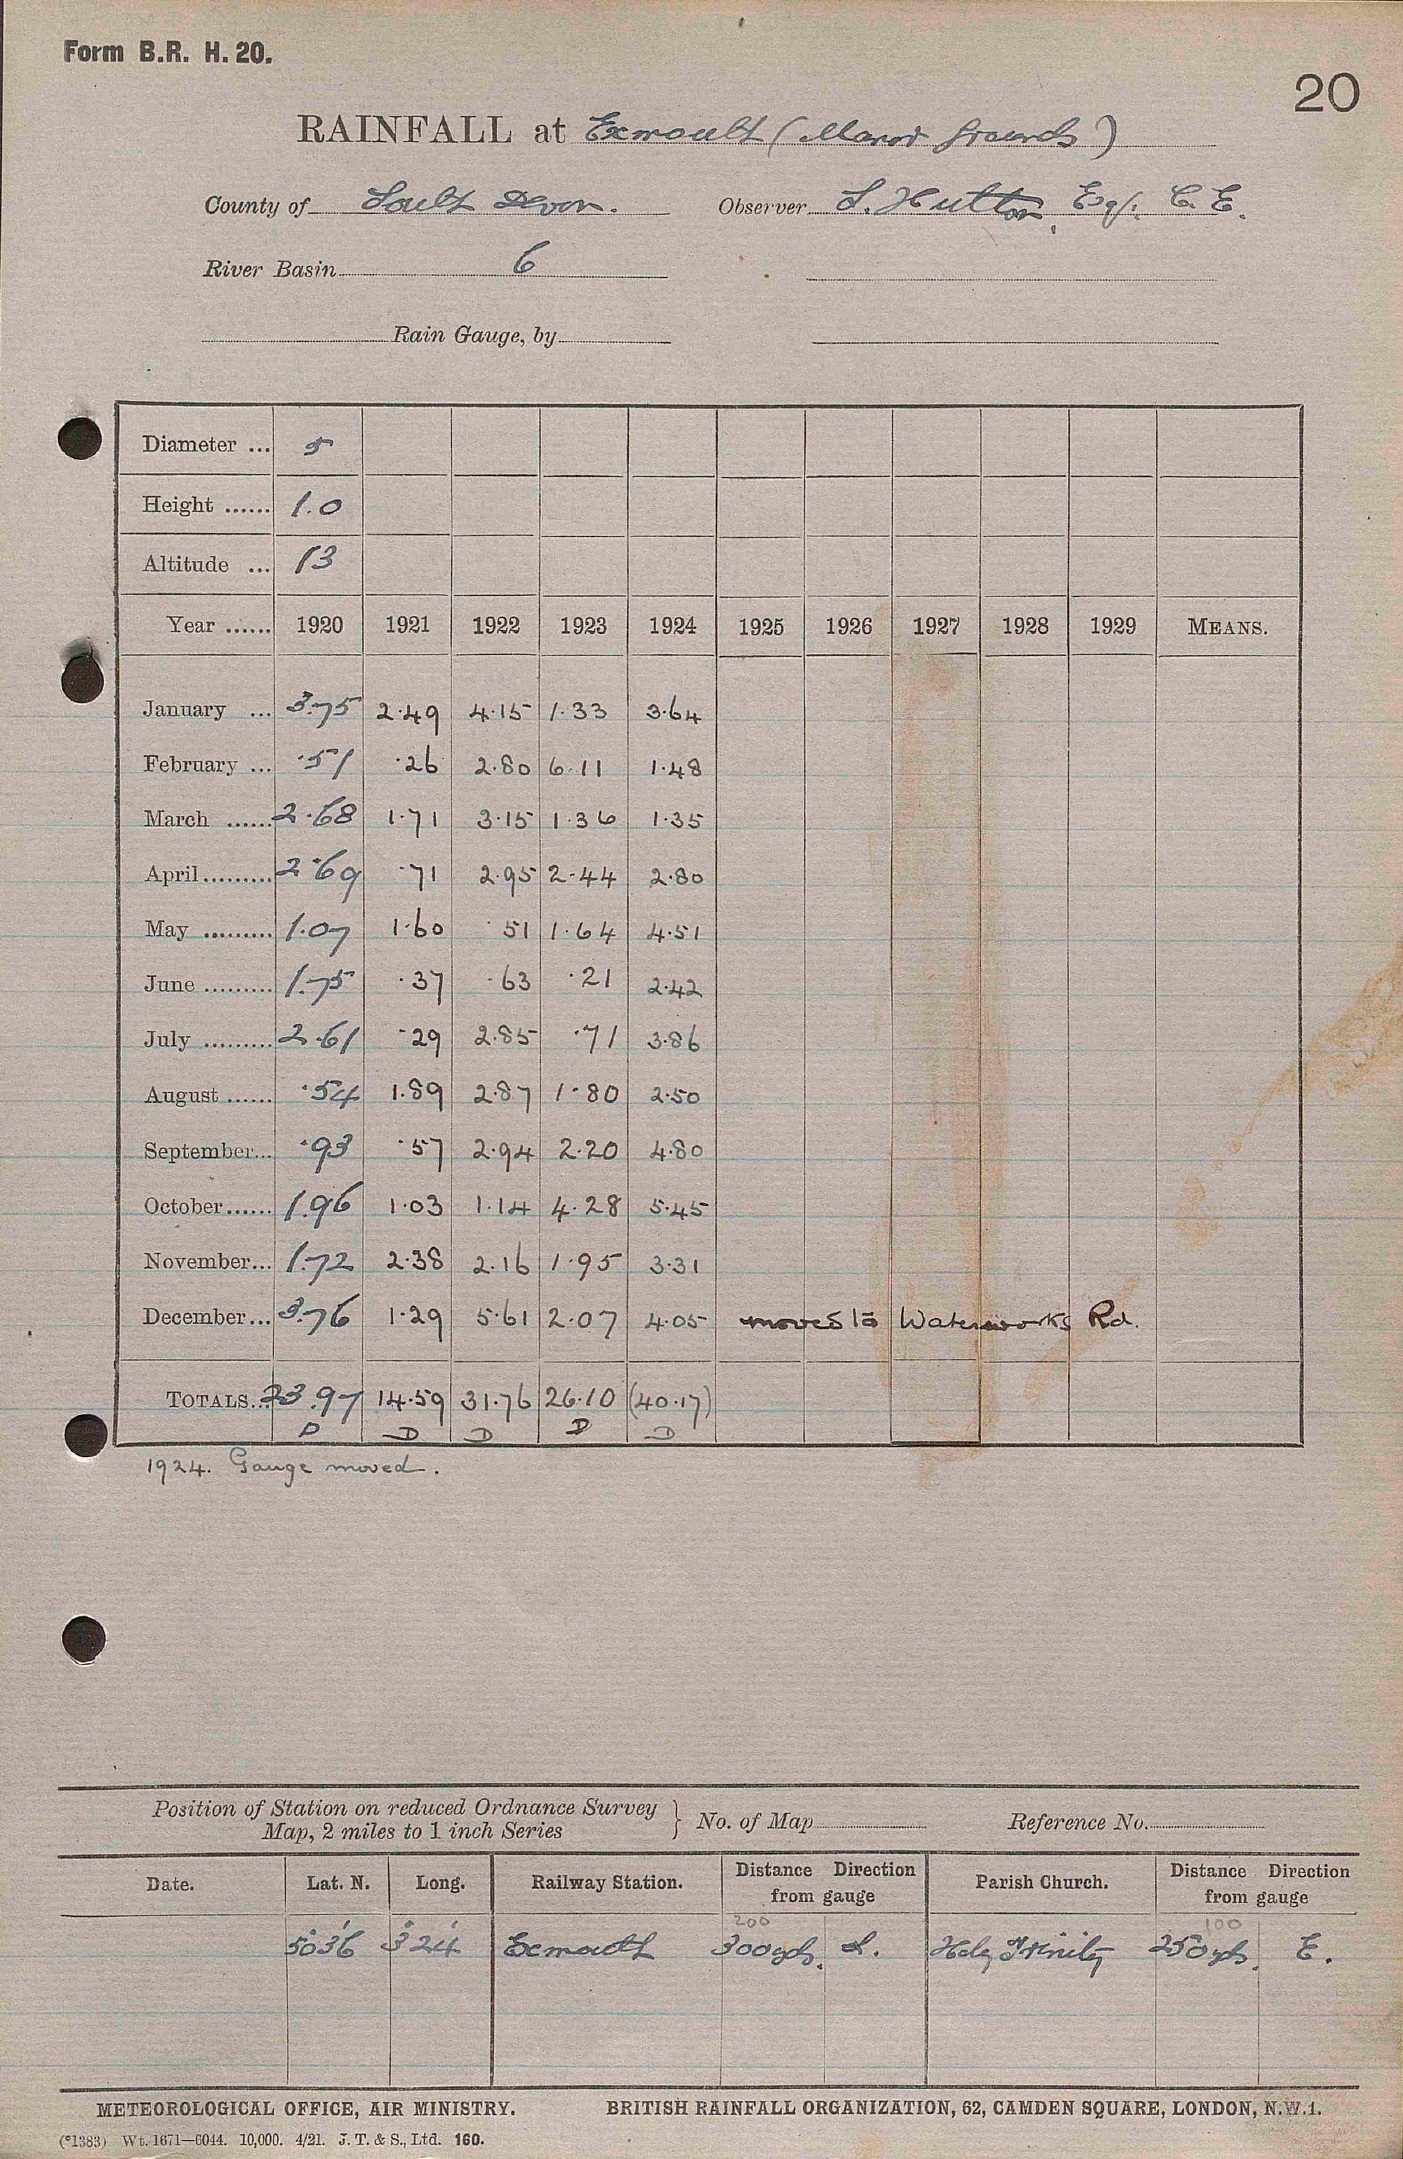 Form B.R. H. 20.
20
RAINFALL at Exmouth (Manor Grounds)
County of South Devon. Observer S. Hutton, Esq. C.E.
River Basin 6
Rain Gauge, by
Diameter ... 5
Height ...... 1.0
Altitude ... 13
Year ...... 1920 1921 1922 1923 1924 1925 1926 1927 1928 1929 MEANS.
January ... 3.75 2.49 4.15 1.33 3.64
February ... .51 .26 2.80 6.11 1.48
March ...... 2.68 1.71 3.15 1.36 1.35
April ......... 2.69 .71 2.95 2.44 2.80
May ......... 1.07 1.60 .51 1.64 4.51
June ......... 1.75 .37 .63 .21 2.42
July ......... 2.61 .29 2.85 .71 3.86
August ...... .54 1.89 2.87 1.80 2.50
September... .93 .57 2.94 2.20 4.80
October...... 1.96 1.03 1.14 4.28 5.45
November... 1.72 2.38 2.16 1.95 3.31
December... 3.76 1.29 5.61 2.07 4.05 moved to Waterworks Rd.
TOTALS... 23.97 14.59 31.76 26.10 (40.17)
D D D D D
1924. Gauge moved.
Position of Station on reduced Ordnance Survey
Map, 2 miles to 1 inch Series } No. of Map Reference No.
Date. Lat. N. Long. Railway Station. Distance Direction from gauge Parish Church. Distance Direction from gauge
200 100
50°36' 3°24' Exmouth 300yds. S. Holy Trinity 250yds. E.
METEOROLOGICAL OFFICE, AIR MINISTRY. BRITISH RAINFALL ORGANIZATION, 62, CAMDEN SQUARE, LONDON, N.W.1.
(*1383) Wt. 1671—6044. 10,000. 4/21. J. T. & S., Ltd. 160.